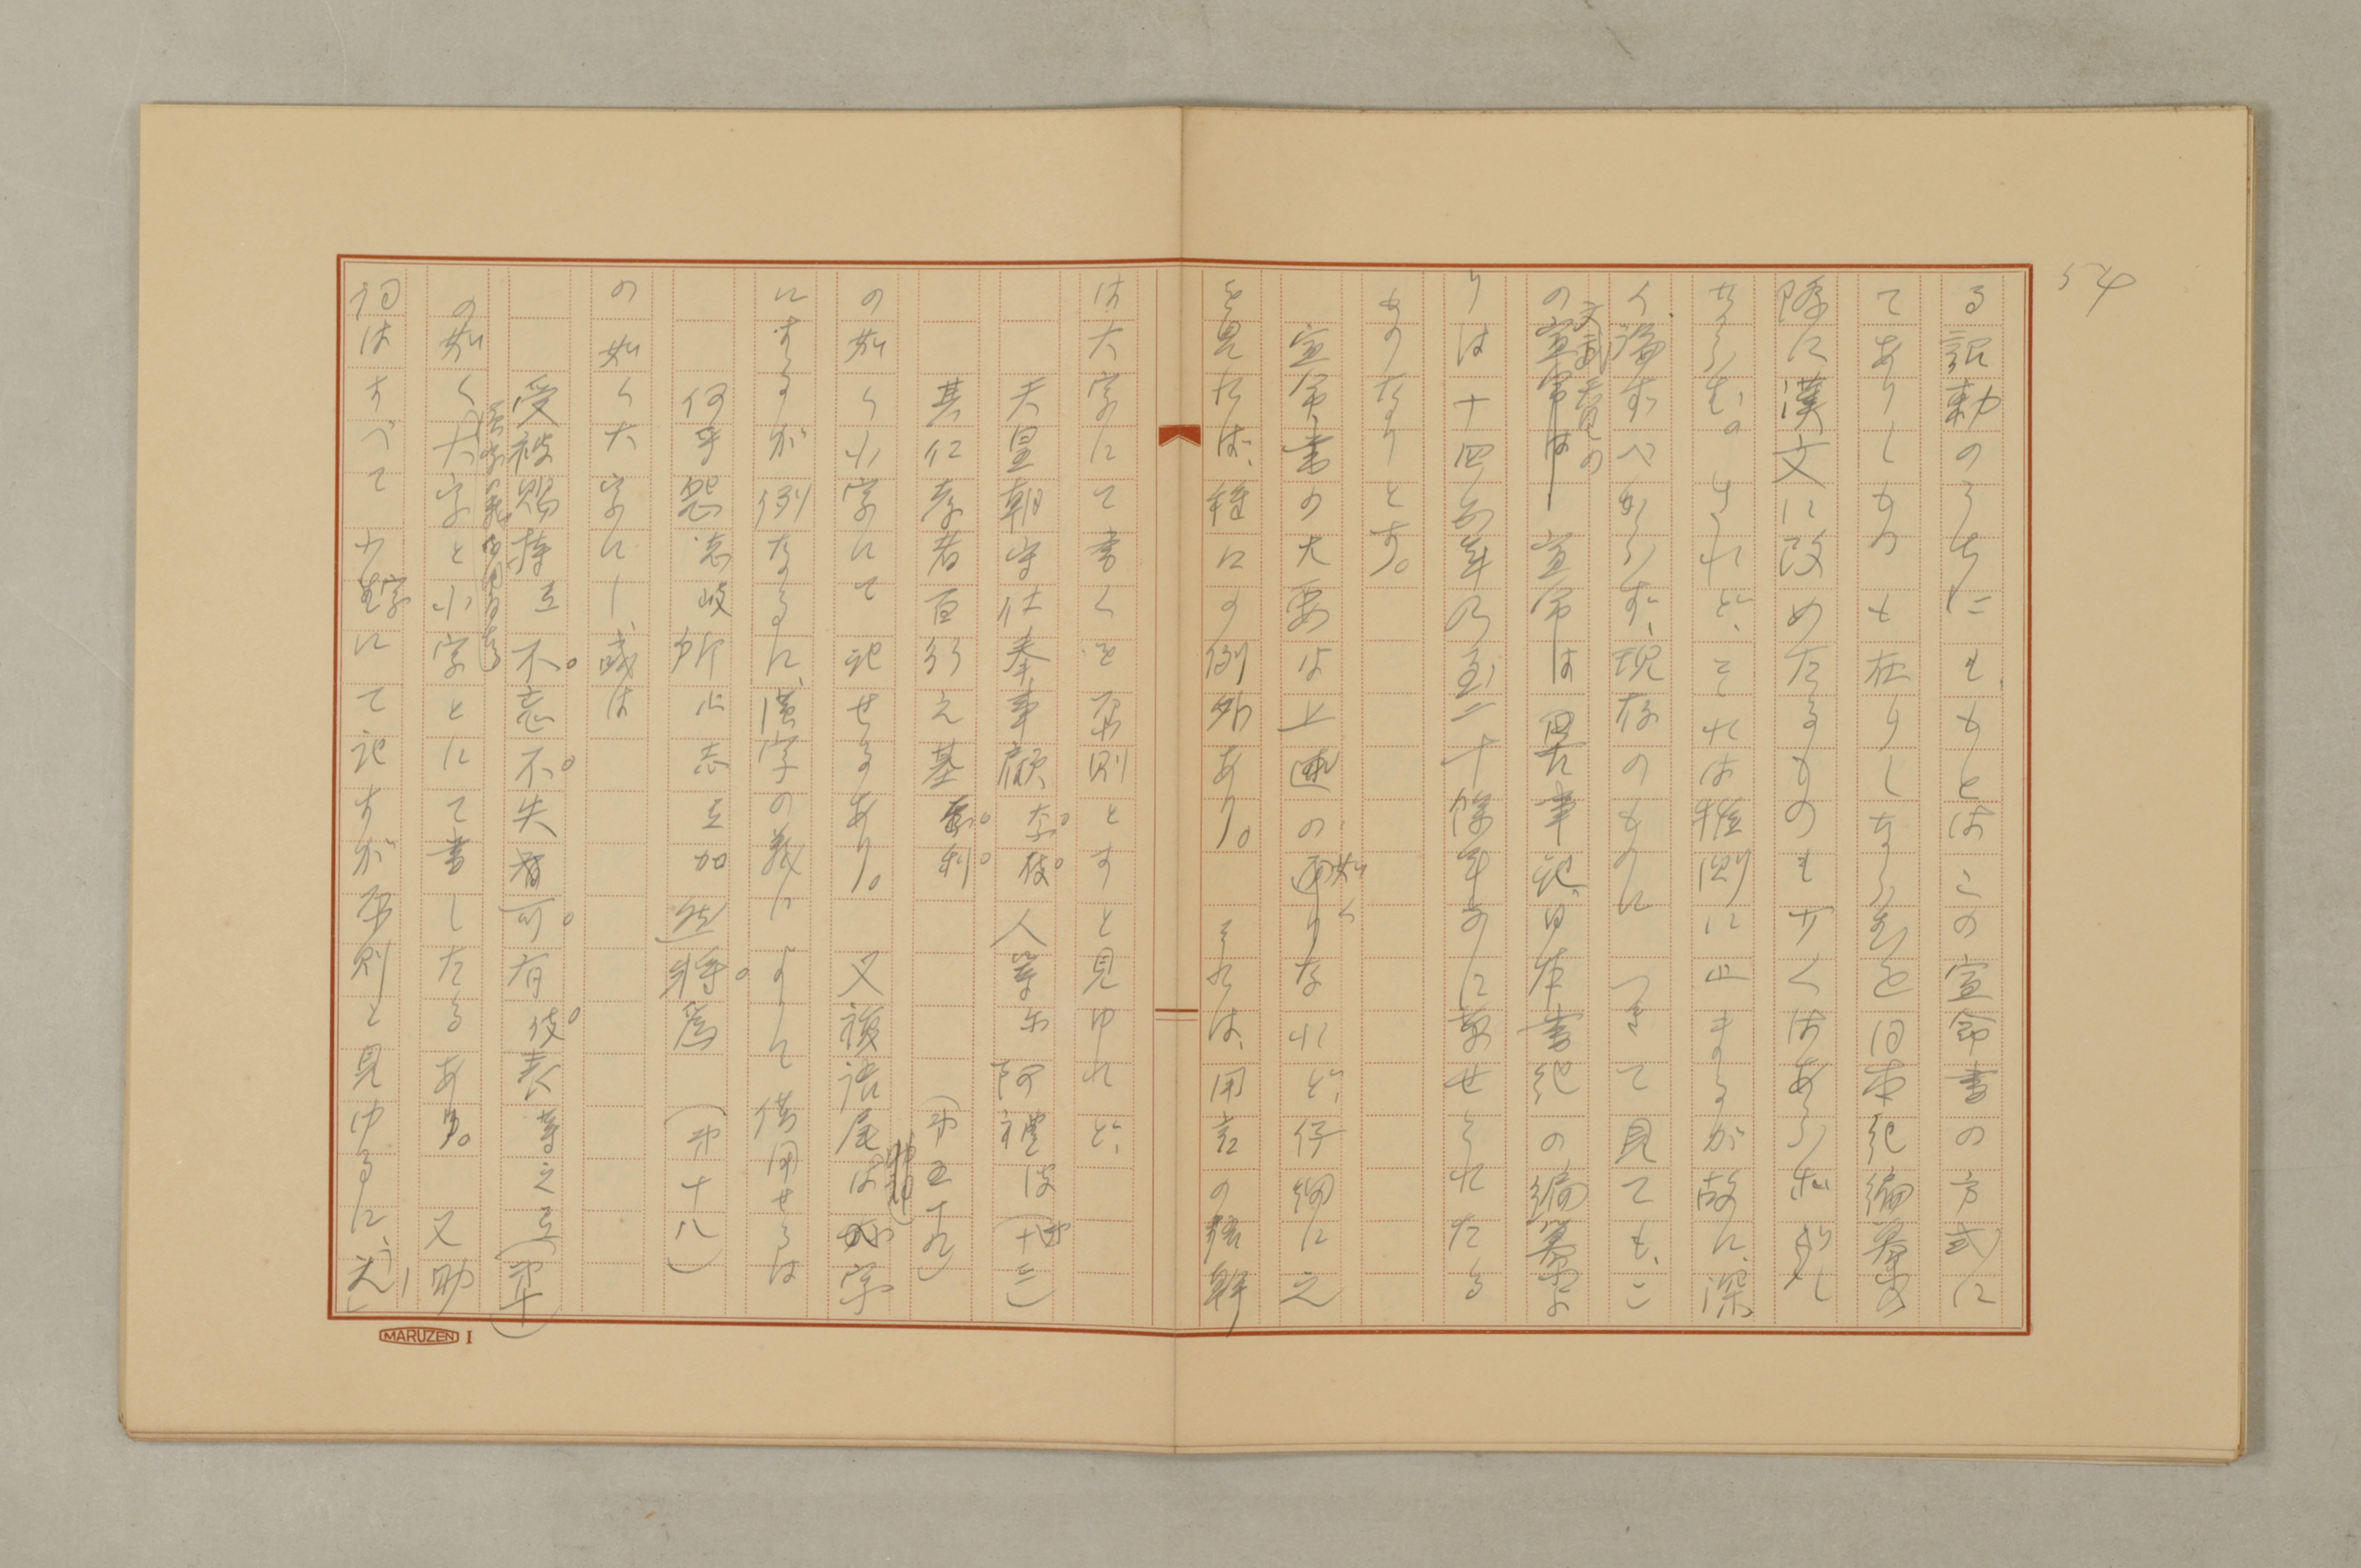 54
る詔勅のうちにももとはこの宣命書の方式に
てありしものも在りしならむを日本紀編纂の
際に漢文に改めたるものも少くはあらざりし
ならむ。されど、それは推測に止まるが故に、深
く論ずべからず、現存のものにつきて見ても、こ
の文武天皇の宣命は古事記、日本書紀の編纂よ
りは十四五年乃至二十余年前に発せられたる
ものなりとす。
宣命書の大要は上述の如くなれど、仔細に之
を見れば、種々の例外あり。それは、用言の語幹
は大字にて書くを原則とすと見ゆれど、
天皇朝守仕奉事顧奈伎人等尓阿礼波(第十三)
其仁孝者百行之基奈利(第五十九)
の如く小字にて記せるあり。又複語尾は小字
にするが例なるに、漢字の義によりて借用せるは
何乎怨志岐所止志弖加然将為(第十八)
の如く大字にし、或は
受被賜持弖不忘不失有可有伎表等之弖(第十)
の如く大字と小字とにて書したるあり。又助
詞はすべて小字にて記すが原則と見ゆるに、
MARUZEN I